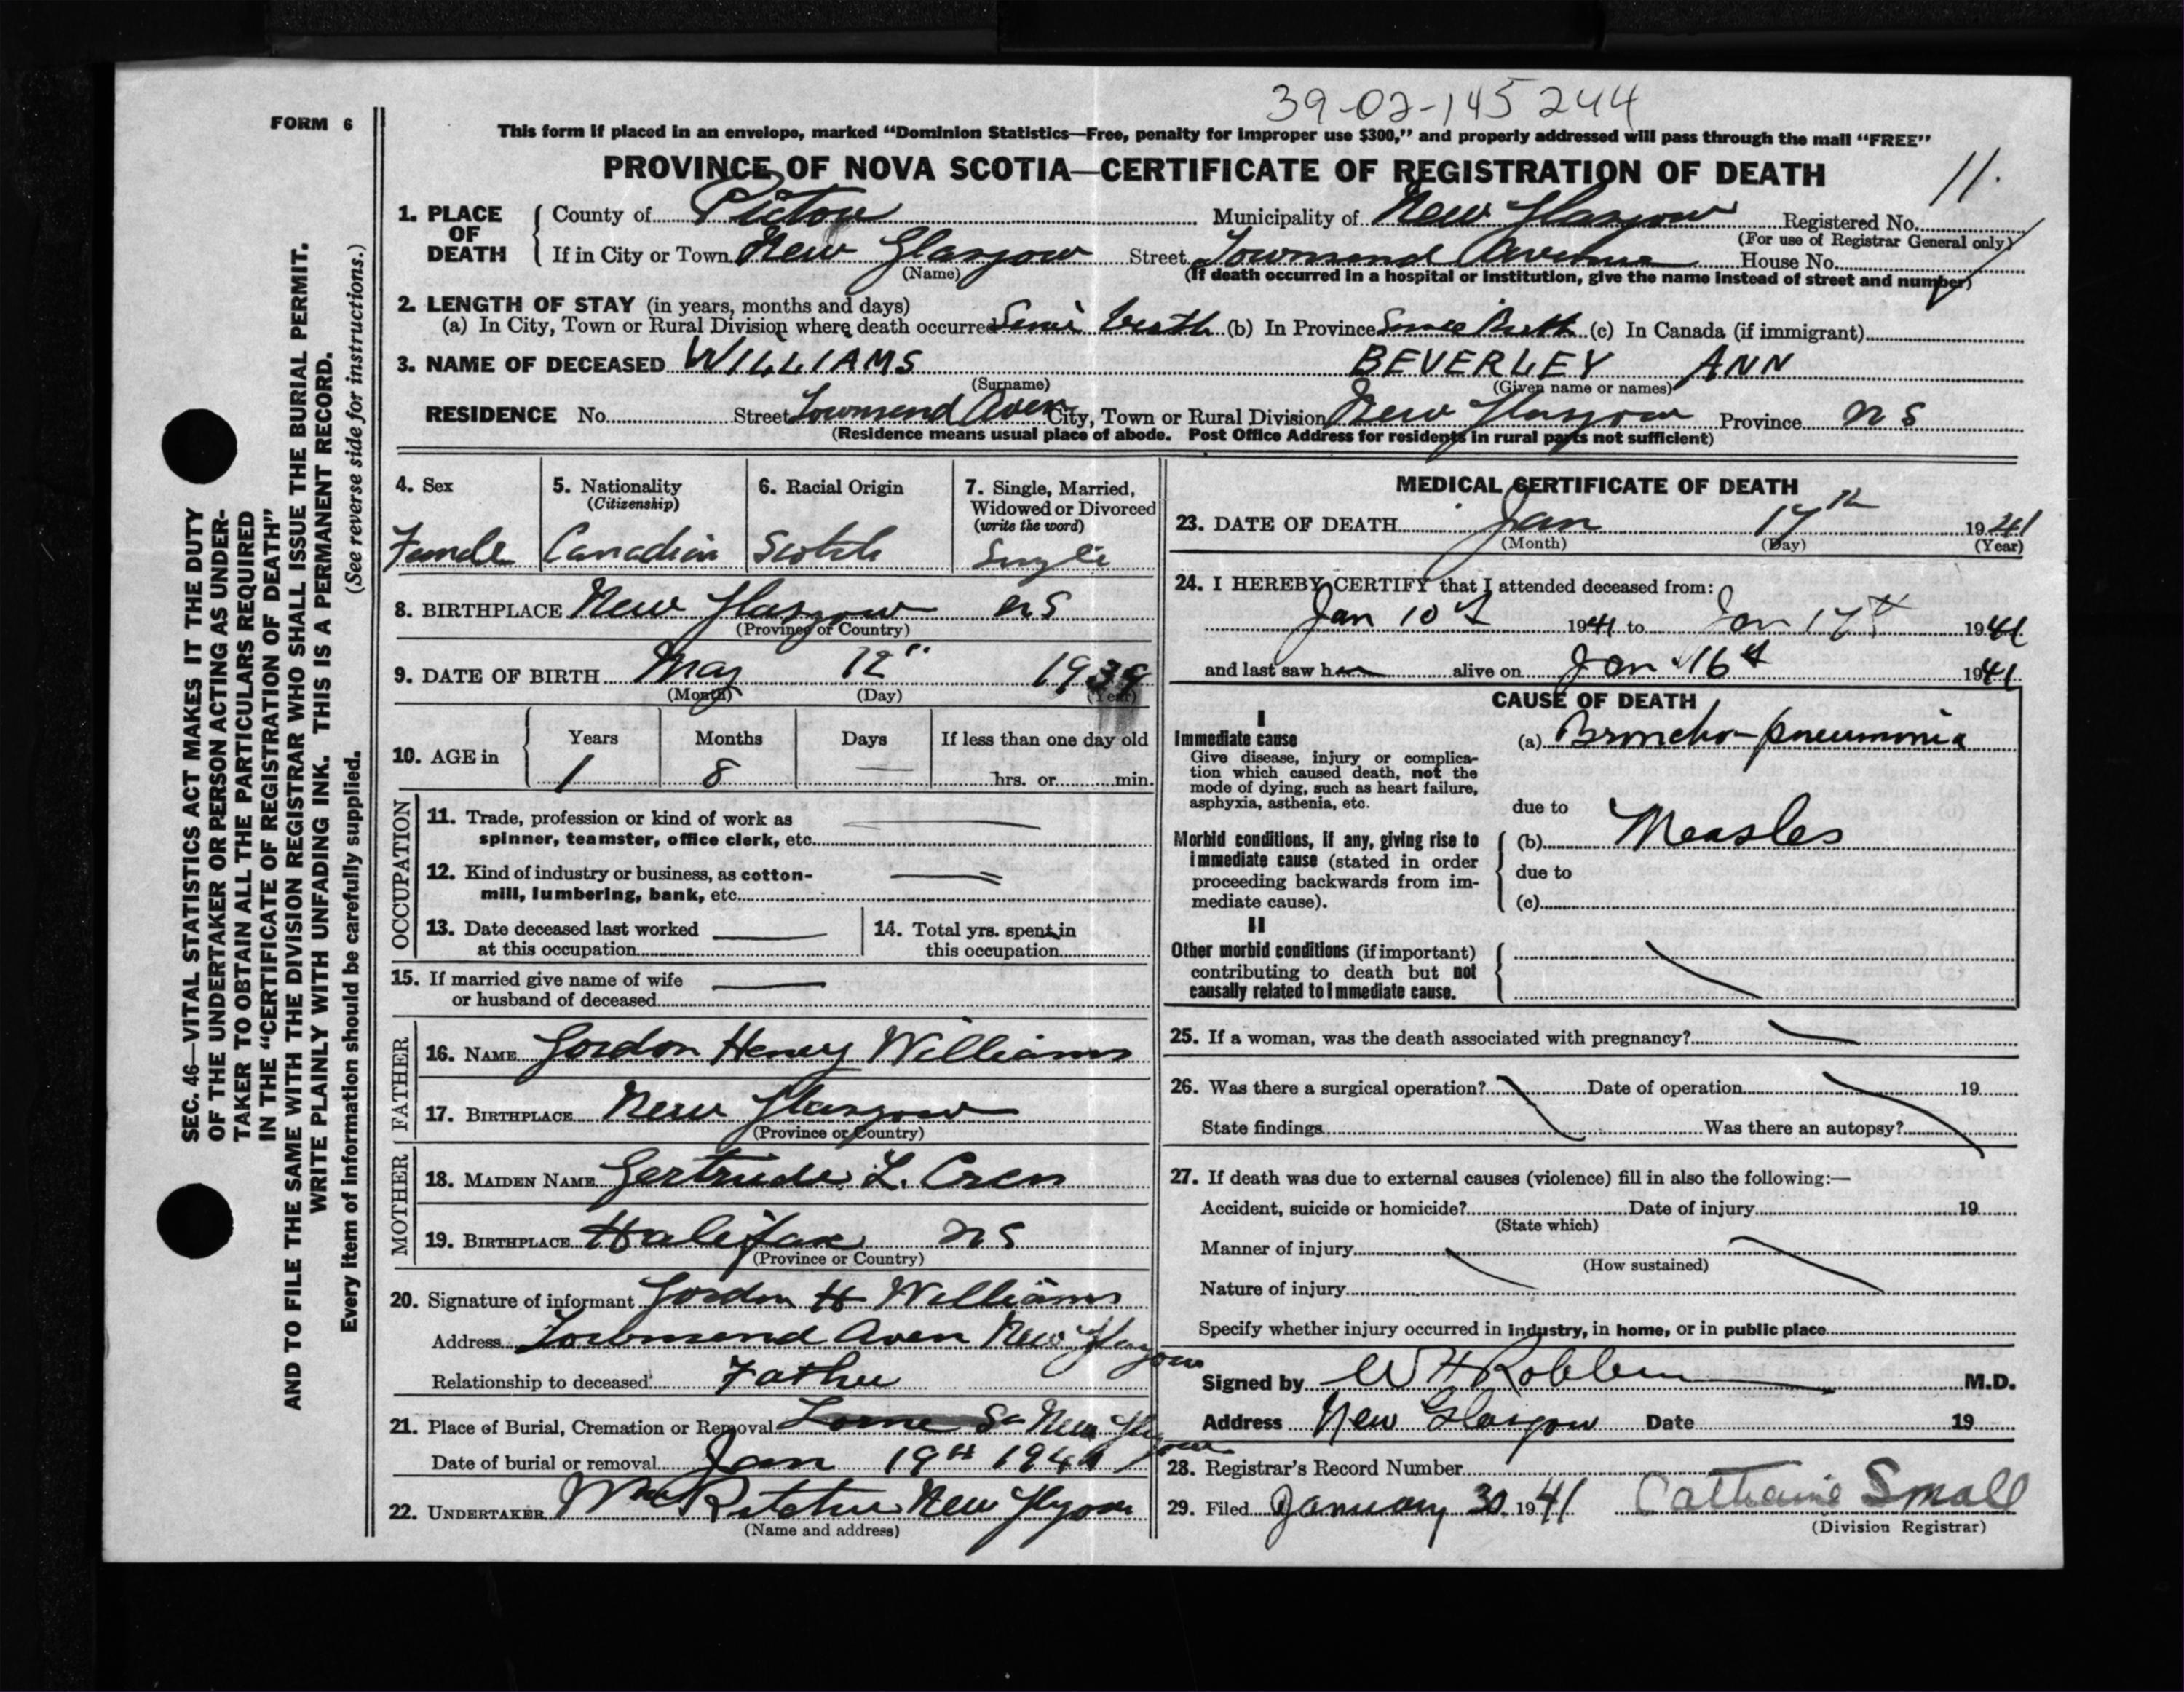 39-02-145244
FORM 6
This form if placed in an envelope, marked “Dominion Statistics—Free, penalty for improper use $300,” and properly addressed will pass through the mail “FREE”
PROVINCE OF NOVA SCOTIA—CERTIFICATE OF REGISTRATION OF DEATH
11.
1. PLACE OF DEATH
County of Pictou Municipality of New Glasgow Registered No.
(For use of Registrar General only)
If in City or Town New Glasgow Street Townsend Avenue House No.
(Name) (If death occurred in a hospital or institution, give the name instead of street and number)
2. LENGTH OF STAY (in years, months and days)
(a) In City, Town or Rural Division where death occurred Since birth (b) In Province Since Birth (c) In Canada (if immigrant)
3. NAME OF DECEASED WILLIAMS BEVERLEY ANN
(Surname) (Given name or names)
RESIDENCE No. Street Townsend Aven City, Town or Rural Division New Glasgow Province N S
(Residence means usual place of abode. Post Office Address for residents in rural parts not sufficient)
4. Sex
Female
5. Nationality
(Citizenship)
Canadian
6. Racial Origin
Scotch
7. Single, Married,
Widowed or Divorced
(write the word)
Single
8. BIRTHPLACE New Glasgow NS
(Province or Country)
9. DATE OF BIRTH May 12" 1939
(Month) (Day) (Year)
10. AGE in
Years Months Days If less than one day old
1 8 — hrs. or min.
OCCUPATION
11. Trade, profession or kind of work as
spinner, teamster, office clerk, etc.
12. Kind of industry or business, as cotton-
mill, lumbering, bank, etc.
13. Date deceased last worked
at this occupation
14. Total yrs. spent in
this occupation
15. If married give name of wife
or husband of deceased
FATHER
16. NAME Gordon Henry Williams
17. BIRTHPLACE New Glasgow
(Province or Country)
MOTHER
18. MAIDEN NAME Gertrude L.
19. BIRTHPLACE Halifax NS
(Province or Country)
20. Signature of informant Gordon H Williams
Address Townsend Aven New Glasgow
Relationship to deceased Father
21. Place of Burial, Cremation or Removal Lorne St New Glasgow
Date of burial or removal Jan 19th 1941
22. UNDERTAKER Ritchie New Glgow
(Name and address)
MEDICAL CERTIFICATE OF DEATH
23. DATE OF DEATH Jan 17th 1941
(Month) (Day) (Year)
24. I HEREBY CERTIFY that I attended deceased from:
Jan 10th 1941 to Jan 17th 1941
and last saw her alive on Jan 16th 1941
CAUSE OF DEATH
I
Immediate cause
Give disease, injury or complica-
tion which caused death, not the
mode of dying, such as heart failure,
asphyxia, asthenia, etc.
(a) Broncho-pneumonia
due to
Morbid conditions, if any, giving rise to
immediate cause (stated in order
proceeding backwards from im-
mediate cause).
(b) Measles
due to
(c)
II
Other morbid conditions (if important)
contributing to death but not
causally related to immediate cause.
25. If a woman, was the death associated with pregnancy?
26. Was there a surgical operation? Date of operation 19
State findings Was there an autopsy?
27. If death was due to external causes (violence) fill in also the following:—
Accident, suicide or homicide? Date of injury 19
(State which)
Manner of injury
(How sustained)
Nature of injury
Specify whether injury occurred in industry, in home, or in public place
Signed by W H M.D.
Address New Glasgow Date 19
28. Registrar's Record Number
29. Filed January 30 1941 Catharine Small
(Division Registrar)
SEC. 46—VITAL STATISTICS ACT MAKES IT THE DUTY
OF THE UNDERTAKER OR PERSON ACTING AS UNDER-
TAKER TO OBTAIN ALL THE PARTICULARS REQUIRED
IN THE “CERTIFICATE OF REGISTRATION OF DEATH”
AND TO FILE THE SAME WITH THE DIVISION REGISTRAR WHO SHALL ISSUE THE BURIAL PERMIT.
WRITE PLAINLY WITH UNFADING INK. THIS IS A PERMANENT RECORD.
Every item of information should be carefully supplied. (See reverse side for instructions.)